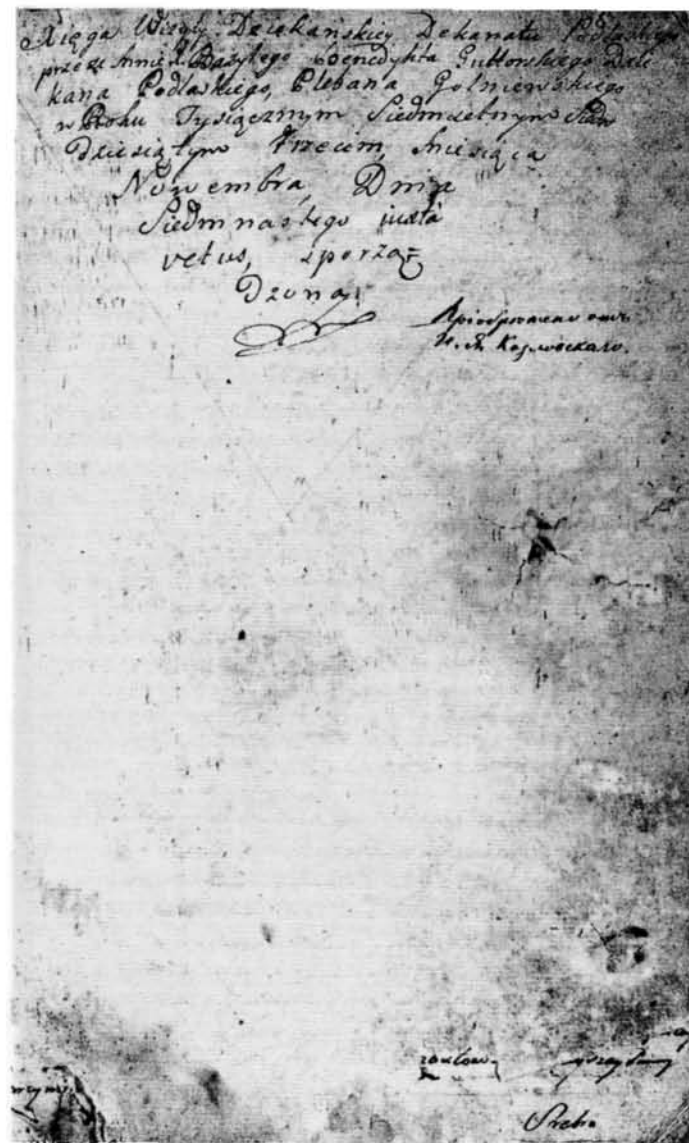 Xięga Wizyty Dziekańskiey Dekanatu Podlaskiego
przeze mnie X. Bazylego Benedykta Guttorskiego Dzie
kana Podlaskiego, Plebana Golniewskiego
w Roku Tysiącznym Siedmsetnym
Dziesiątym Trzecim, Miesiąca
Nowembra, Dnia
Siedmnastego iuxta
vetus, sporzą=
Dzona.
Приобретено отъ
И. Козловскаго.